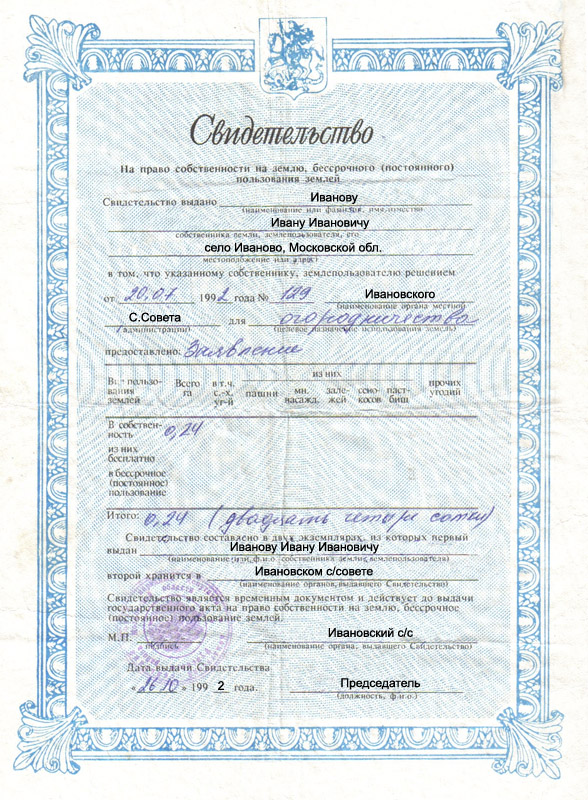 Свидетельство
На право собственности на землю, бессрочного (постоянного)
пользования землей
Свидетельство выдано Иванову
(наименование или фамилия, имя, отчество
Ивану Ивановичу
собственника земли, землепользователя, его
село Иваново, Московской обл.
местоположение или адрес)
в том, что указанному собственнику, землепользователю решением
от 20.07 1992 года № 129 Ивановского
(наименование органа местной
С.Совета для огородничества
администрации) (целевое назначение использования земель)
предоставлено: Заявление
из них
Вид пользования землей
Всего га
в т.ч. с.-х. уг-й
пашни
мн. насажд.
залежей
сенокосов
пастбищ
прочих угодий
В собствен-
ность 0,24
из них
бесплатно
в бессрочное
(постоянное)
пользование
Итого: 0,24 (двадцать четыре сотки)
Свидетельство составлено в двух экземплярах, из которых первый
выдан Иванову Ивану Ивановичу
(наименование или ф.и.о. собственника земли, землепользователя)
второй хранится в Ивановском с/совете
(наименование органов, выдавшего Свидетельство)
Свидетельство является временным документом и действует до выдачи
государственного акта на право собственности на землю, бессрочное
(постоянное) пользование землей.
М.П. Ивановский с/с
подпись (наименование органа, выдавшего Свидетельство)
Дата выдачи Свидетельства
«26.10» 1992 года. Председатель
(должность, ф.и.о.)